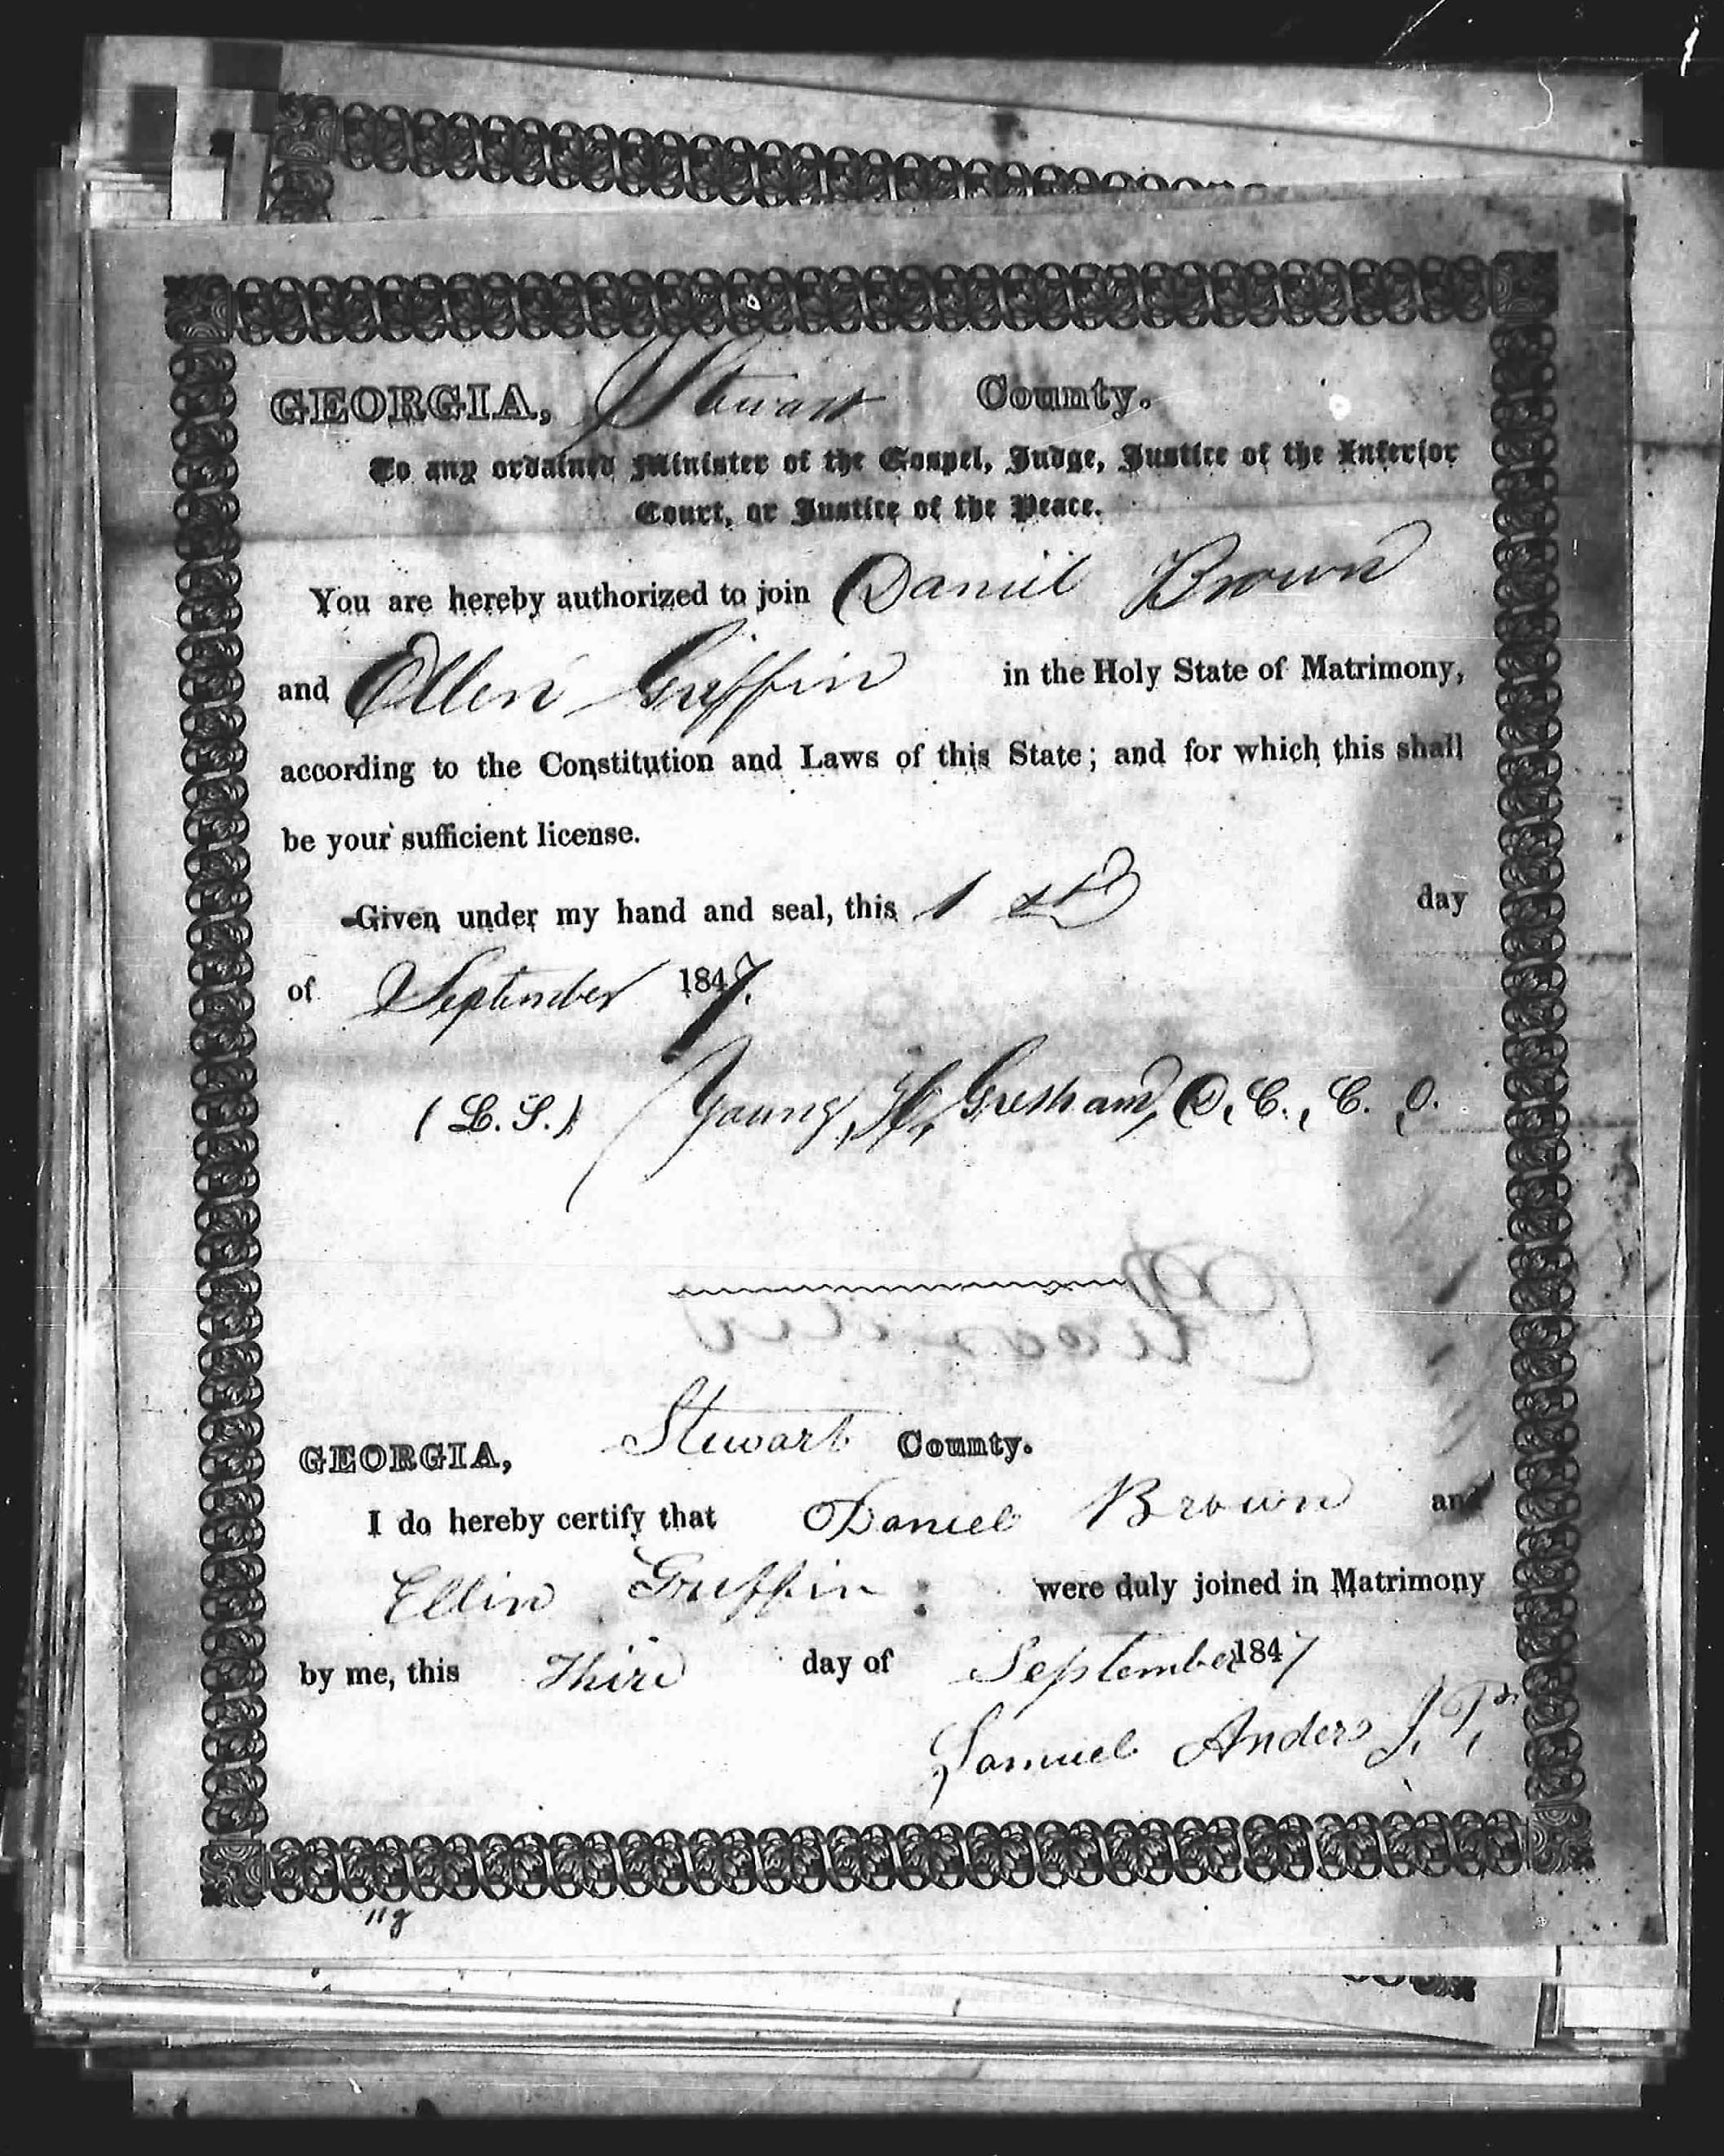 GEORGIA, Stewart County.
To any ordained Minister of the Gospel, Judge, Justice of the Inferior
Court, or Justice of the Peace.
You are hereby authorized to join Daniel Brown
and Ellen Griffin in the Holy State of Matrimony,
according to the Constitution and Laws of this State; and for which this shall
be your sufficient license.
Given under my hand and seal, this 1st day
of September 1847.
(L.S.) Young H, Gresham, D, C., C. O.
GEORGIA, Stewart County.
I do hereby certify that Daniel Brown and
Ellin Griffin were duly joined in Matrimony
by me, this Third day of September 1847
Samuel Anders J. P.